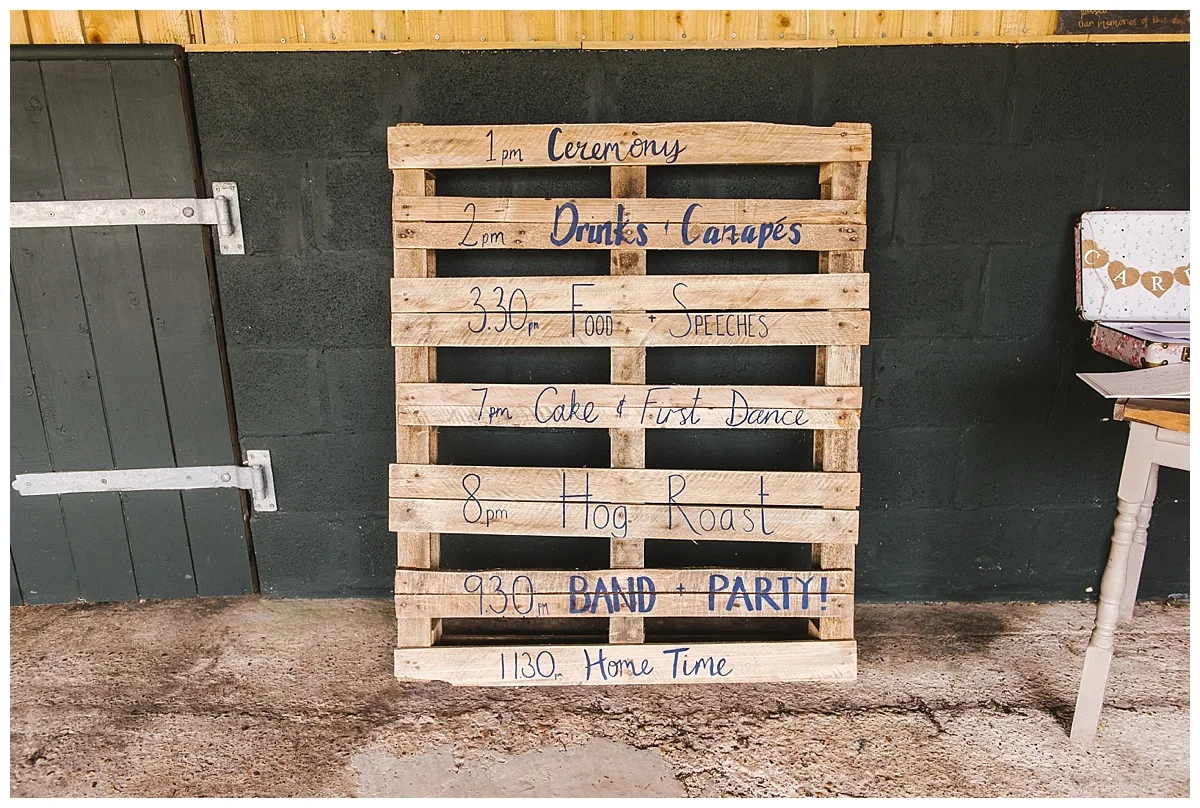 Our Memories of this day
1pm Ceremony
2pm Drinks + Canapés
3.30pm Food + Speeches
7pm Cake & First Dance
8pm Hog Roast
9.30pm BAND + PARTY!
1130 Home Time
CAR